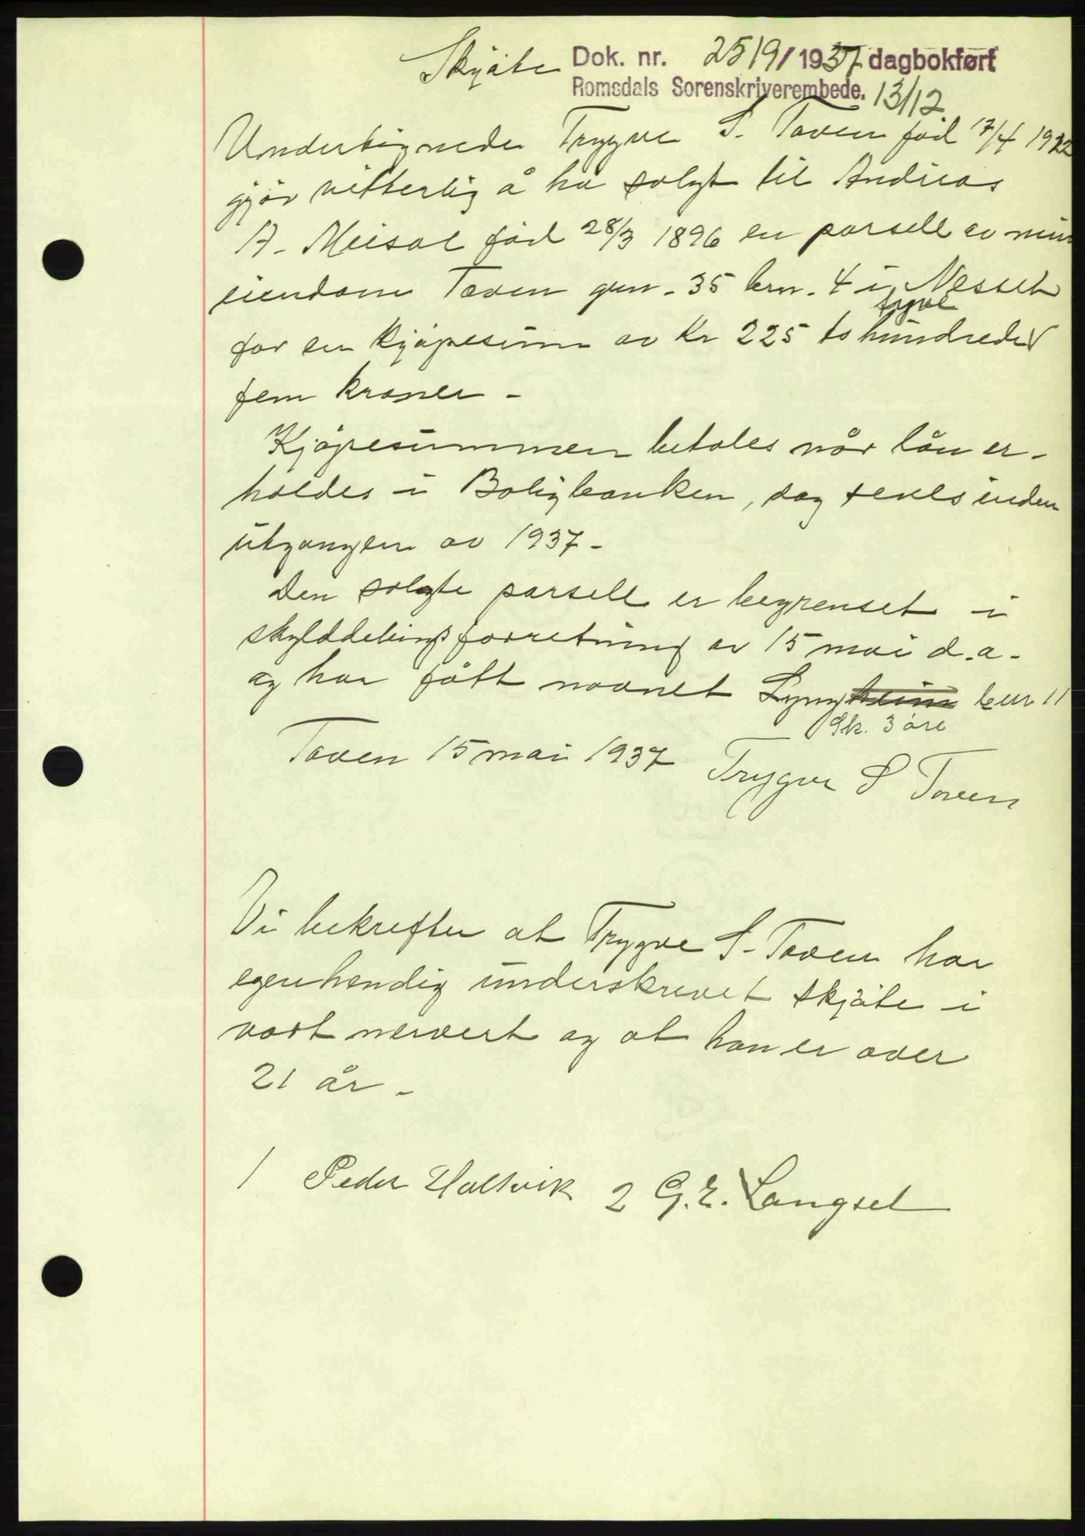 Skjøte Dok. nr. 2519/1937 dagbokført
Romsdals Sorenskriverembede. 13/12
Undertegnede Trygve S. Toven född 17/4 1912
gjör vitterlig å ha solgt til Andreas
A. Meisal föd 28/3 1896 en parsell av min
eiendom Toven gnr. 35 brn. 4 i Nesset
for en kjöpesum av Kr 225 to hundrede
tyve
fem kroner -
Kjöpesummen betales når lån er-
holdes i Boligbanken, dog senest inden
utgangen av 1937 -
Den solgte parsell er begrenset i
skylddelingsforretning av 15 mai d.a.
og har fått navnet Lyngheim bnr 11
Sk. 3 øre
Toven 15 mai 1937 Trygve S Toven
Vi bekrefter at Trygve S. Toven har
egenhendig underskrevet skjöte i
vort nervert og at han er over
21 år -
1 Peder Holtvik 2 G. E. Langset